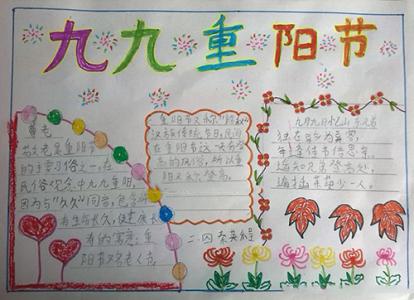 九九重阳节
尊老
敬老是重阳节
的主要习俗之一,在
民俗观念中九九重阳,
因为与"久久"同音,包含
有生命长久,健康长
寿的寓意,重
阳节又名老人节
重阳节又称"踏秋"
汉族传统节日,民间
在重阳节这一天有登
高的风俗,所以重
阳又称登高
九月九日忆山东兄弟
独在异乡为异客,
每逢佳节倍思亲。
遥知兄弟登高处,
遍插茱萸少一人。
二、四 秦英